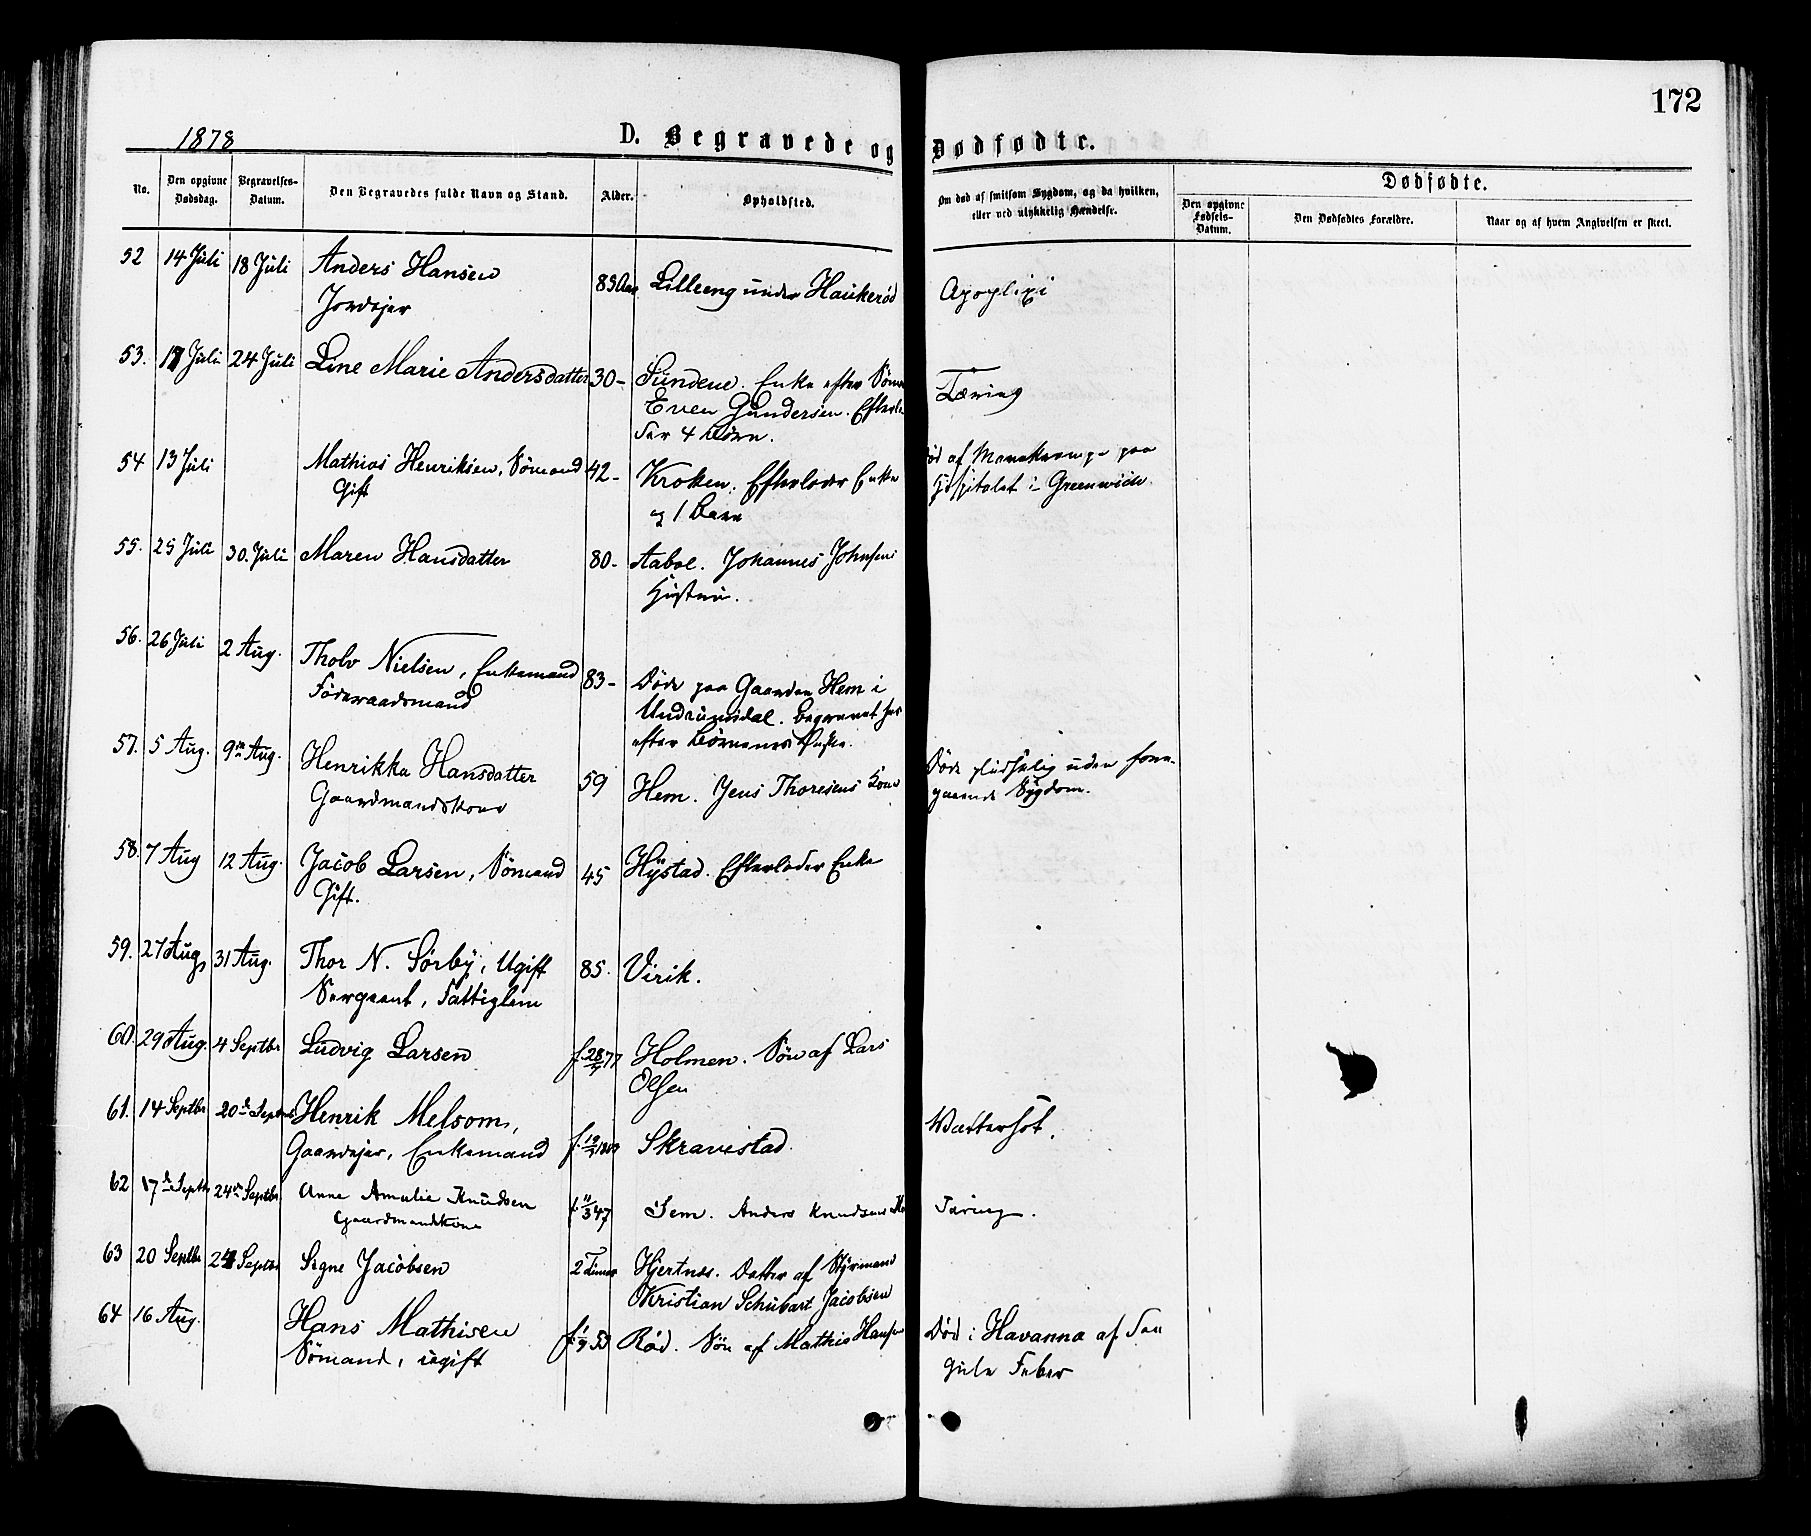 172
1878
D. Begravede og Dødfødte.
No.
Den opgivne Dødsdag.
Begravelses-Datum.
Den Begravedes fulde Navn og Stand.
Alder.
Opholdsted.
Om død af smitsom Sygdom, og da hvilken,
eller ved ulykkelig Hændelse.
Dødfødte.
Den opgivne Fødsels-Datum.
Den Dødfødtes Forældre.
Naar og af hvem Angivelsen er skeet.
52 14 Juli 18 Juli Anders Hansen 83 Aar Lilleeng under Haukerød Apoplexi
Jordejer
53. 17 Juli 24 Juli Line Marie Andersdatter 30- Sundene. Enke efter Søm.
Even Gundersen. Efterla- Tæring
der 4 Børn.
54 13 Juli Mathias Henriksen, Sømand 42- Kroken. Efterlader Enke død af paa
Gift og 1 Barn Hospitalet i Greenwich.
55. 25 Juli 30. Juli Maren Hansdatter 80- Aabol. Johannes Johnsens
Hustru.
56. 26 Juli 2 Aug. Tholv Nielsen, Enkemand 83- Døde paa Gaarden Hem i
Føderaadsmand Undrumsdal. Begravet her
efter Børnenes Ønske.
57. 5 Aug. 9de Aug. Henrikka Hansdatter 59 Hem. Jens Thoresens Kone Døde pludselig uden fore-
Gaardmandskone gaaende Sygdom.
58. 7 Aug 12 Aug. Jacob Larsen, Sømand 45 Hystad. Efterlader Enke
Gift.
59. 27 Aug. 31 Aug. Thor N. Sørby, Ugift 85. Virik.
Sergeant, Fattiglem
60. 29 Aug. 4 Septbr Ludvig Larsen f. 28/7 77 Holmen. Søn af Lars
Olsen
61. 14 Septbr 20de Septbr Henrik Melsom, Skravestad. Vattersot.
Gaardejer, Enkemand
62 17de Septbr 24de Septbr Anne Amalie Knudsen f. 11/3 47 Sem. Anders Knudsens Tæring.
Gaardmandskone
63 20 Septbr 24 Septbr Signe Jacobsen 2 Timer Hjertnes. Datter af Styrmand
Kristian Schubart Jacobsen
64 16 Aug. Hans Mathisen 53 Rød. Søn af Mathis Hansen Død i Havanna af den
Sømand, ugift gule Feber